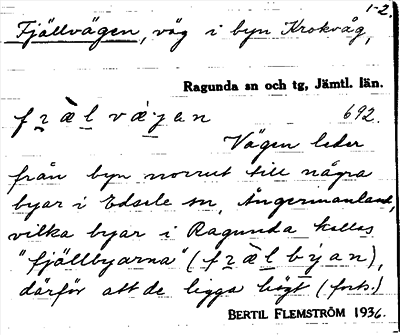 1-2.
Fjällvägen, väg i byn Krokvåg,
Ragunda sn och tg, Jämtl. län.
692.
Vägen leder
från byn norrut till några
byar i Edsele sn, Ångermanland,
vilka byar i Ragunda kallas
"fjällbyarna" (
därför att de ligga högt (forts.)
BERTIL FLEMSTRÖM 1936.